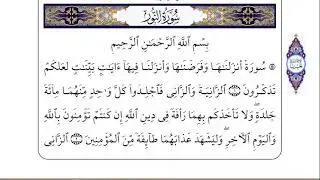 سُورَةُ النُّورِ
بِسْمِ اللَّهِ الرَّحْمَٰنِ الرَّحِيمِ
سُورَةٌ أَنزَلْنَٰهَا وَفَرَضْنَٰهَا وَأَنزَلْنَا فِيهَآ ءَايَٰتٍۭ بَيِّنَٰتٍ لَّعَلَّكُمْ
تَذَكَّرُونَ ۝ الزَّانِيَةُ وَالزَّانِى فَاجْلِدُوا۟ كُلَّ وَٰحِدٍ مِّنْهُمَا مِا۟ئَةَ
جَلْدَةٍ ۖ وَلَا تَأْخُذْكُم بِهِمَا رَأْفَةٌ فِى دِينِ اللَّهِ إِن كُنتُمْ تُؤْمِنُونَ بِاللَّهِ
وَالْيَوْمِ الْءَاخِرِ ۖ وَلْيَشْهَدْ عَذَابَهُمَا طَآئِفَةٌ مِّنَ الْمُؤْمِنِينَ ۝ الزَّانِى